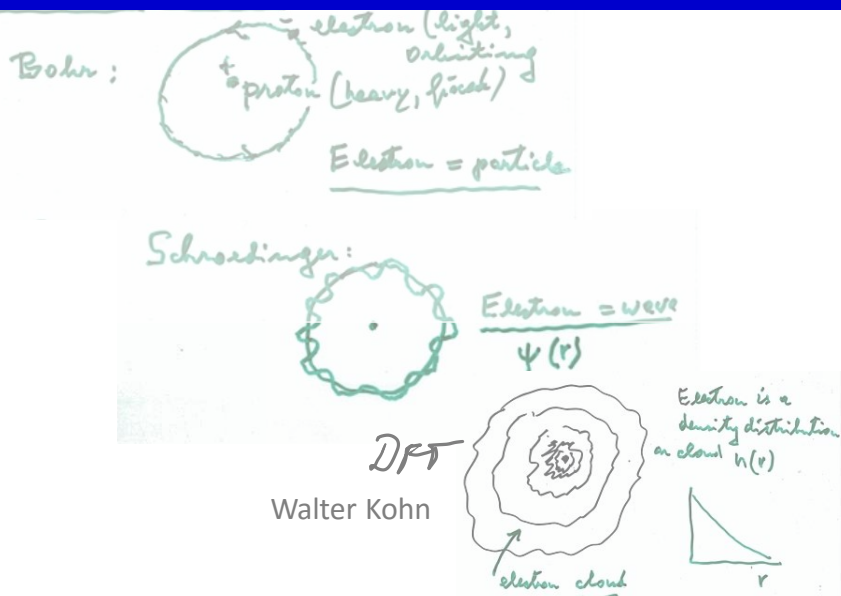 Bohr:
electron (light,
orbiting
+
proton (heavy, fixed)
Electron = particle
Schroedinger:
Electron = wave
ψ (r)
DFT
Walter Kohn
Electron is a
density distribution
or cloud n(r)
electron cloud
r